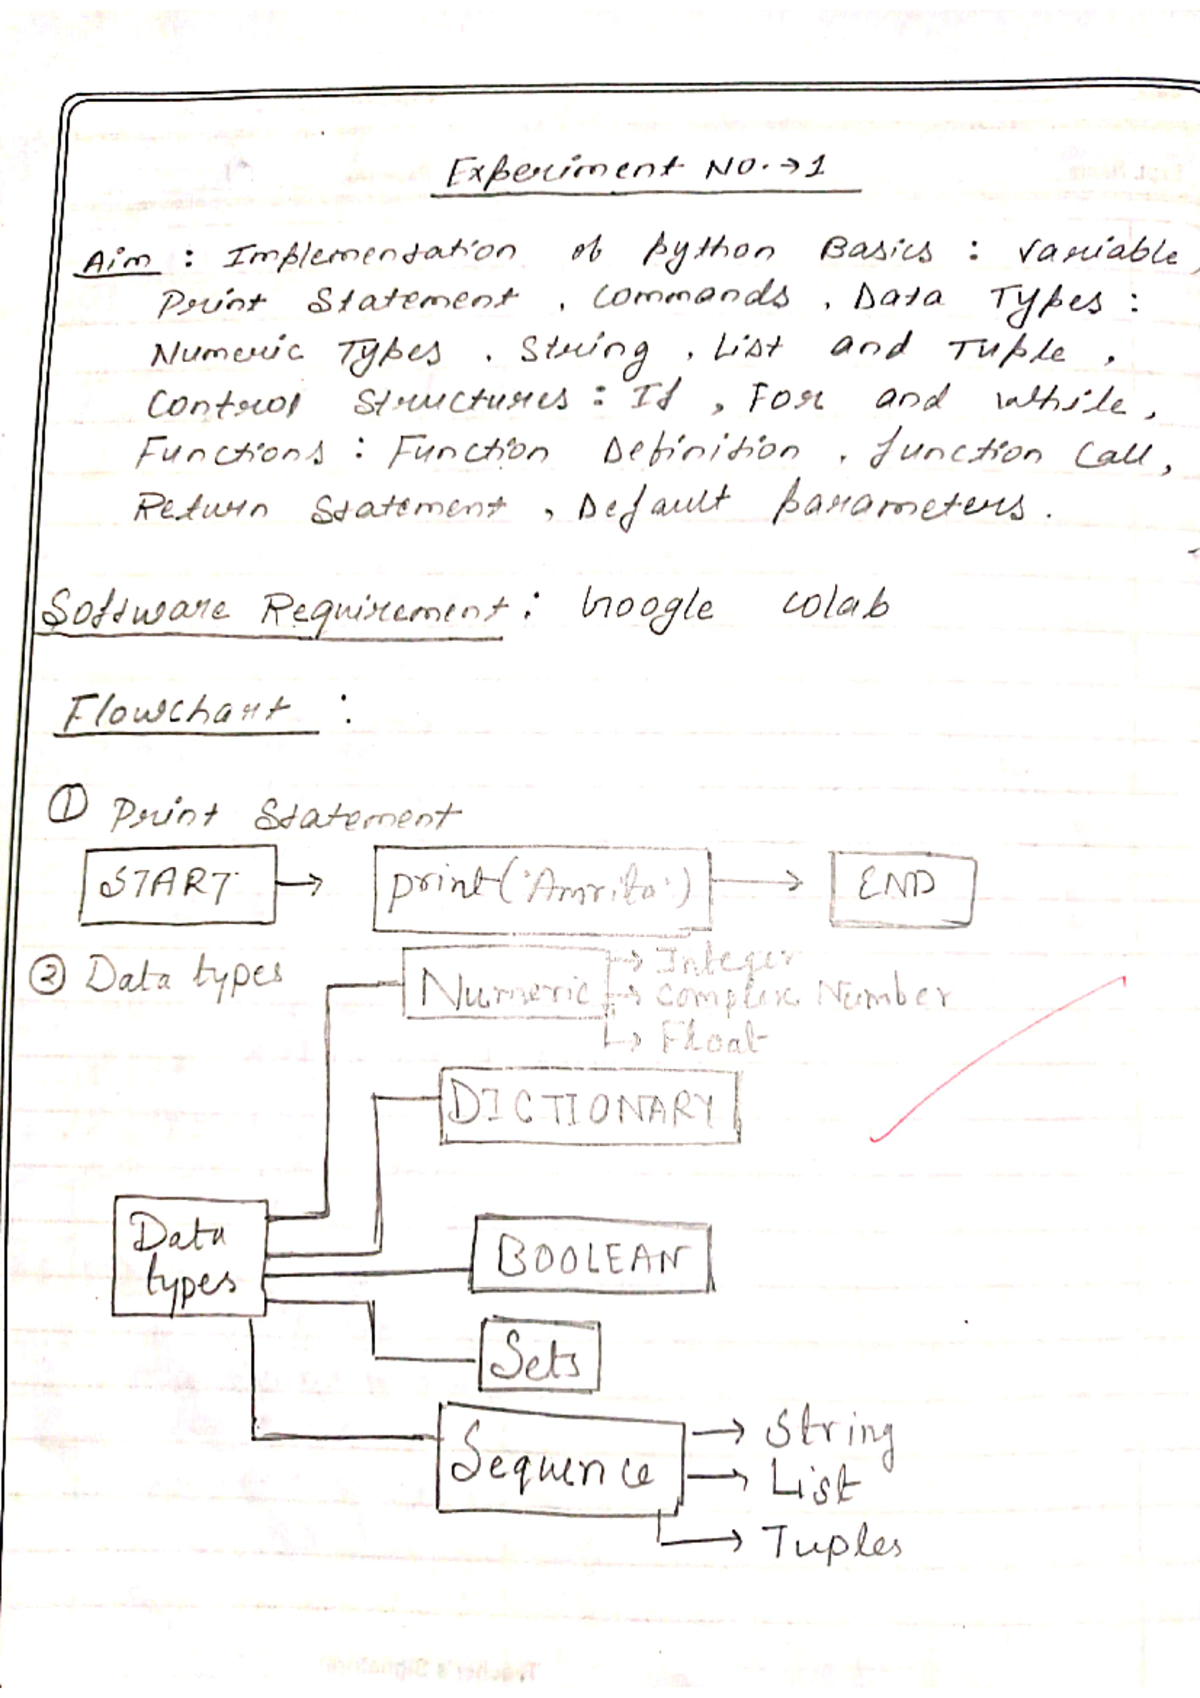 Experiment No. → 1
Aim : Implementation of python Basics : Variable,
Print Statement , Commands , Data Types :
Numeric Types , String , List and Tuple ,
Control Structures : If , For and While ,
Functions : Function Definition , function Call ,
Return Statement , Default parameters .
Software Requirement : Google Colab
Flowchart :
① Print Statement
START → print('Amrita') → END
② Data types
Numeric → Integer
→ Complex Number
→ Float
DICTIONARY
Data
types
BOOLEAN
Sets
Sequence → String
→ List
→ Tuples
Teacher's Signature